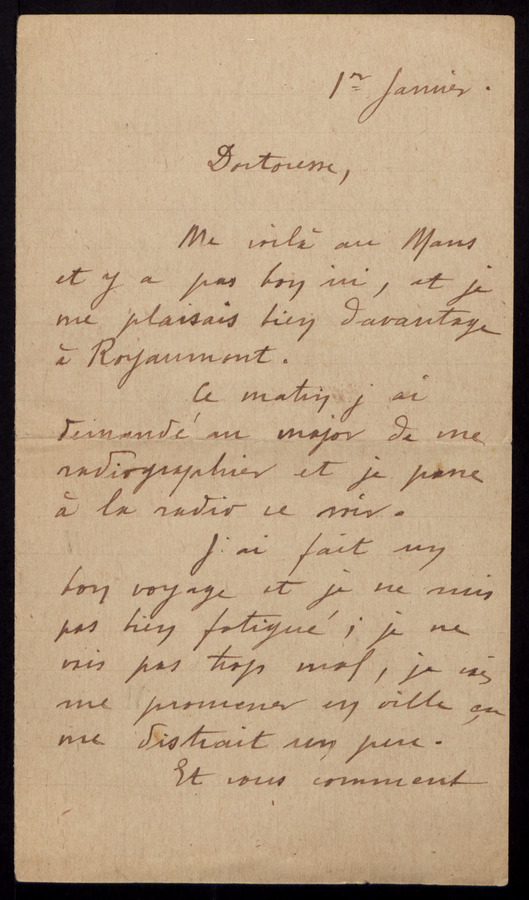 1er Janvier.
Doctoresse,
Me voilà au Mans
et y a pas bon ici, et je
me plaisais bien davantage
à Royaumont.
Ce matin j'ai
demandé au major de me
radiographier et je passe
à la radio ce soir.
J'ai fait un
bon voyage et je ne suis
pas bien fatigué ; je ne
vais pas trop mal, je vais
me promener en ville ça
me distrait un peu.
Et vous comment